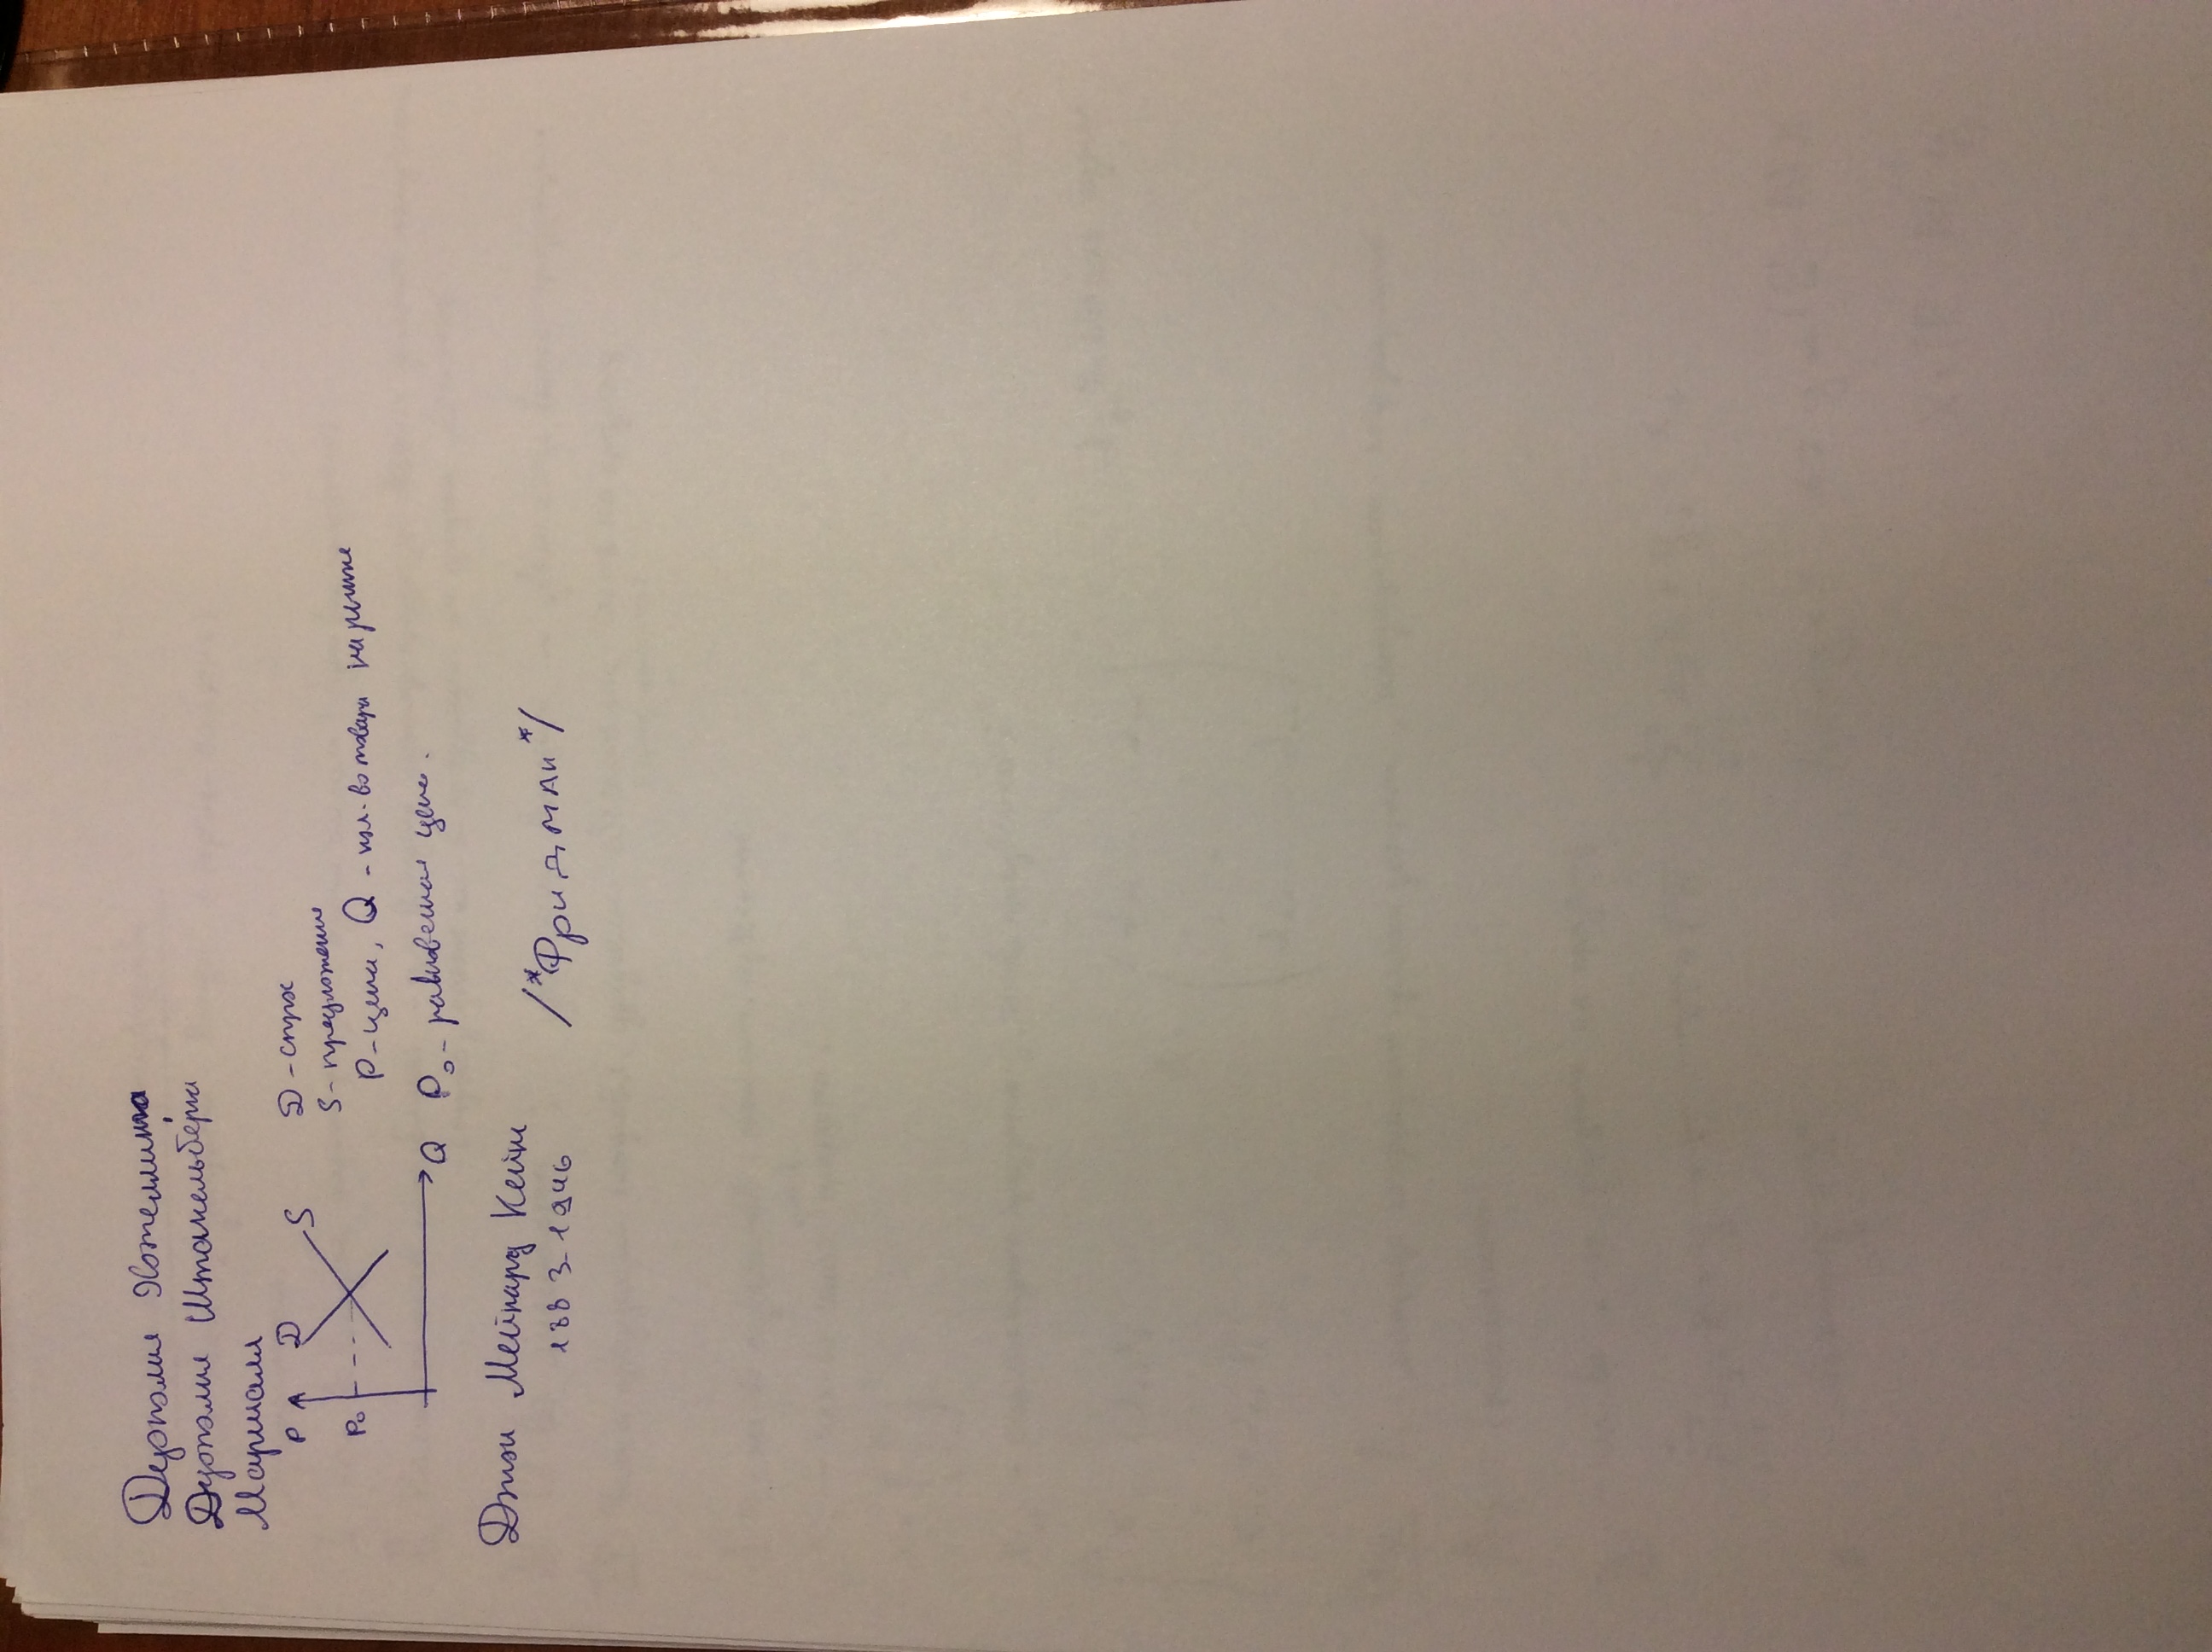 Дуополия Хотеллинга
Дуополия Штакельберга
Маршалл
P D S
P₀
Q
D - спрос
S - предложение
P - цена, Q - кол-во товара на рынке
P₀ - равновесная цена.
Джон Мейнард Кейнс
1883-1946
/*Фридман*/